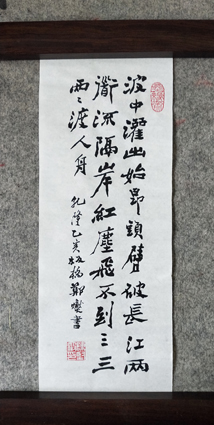 波中濯出始昂頭劈破長江兩
派流隔岸紅塵飛不到三三
兩兩渡人舟
乾隆乙亥板橋鄭燮書